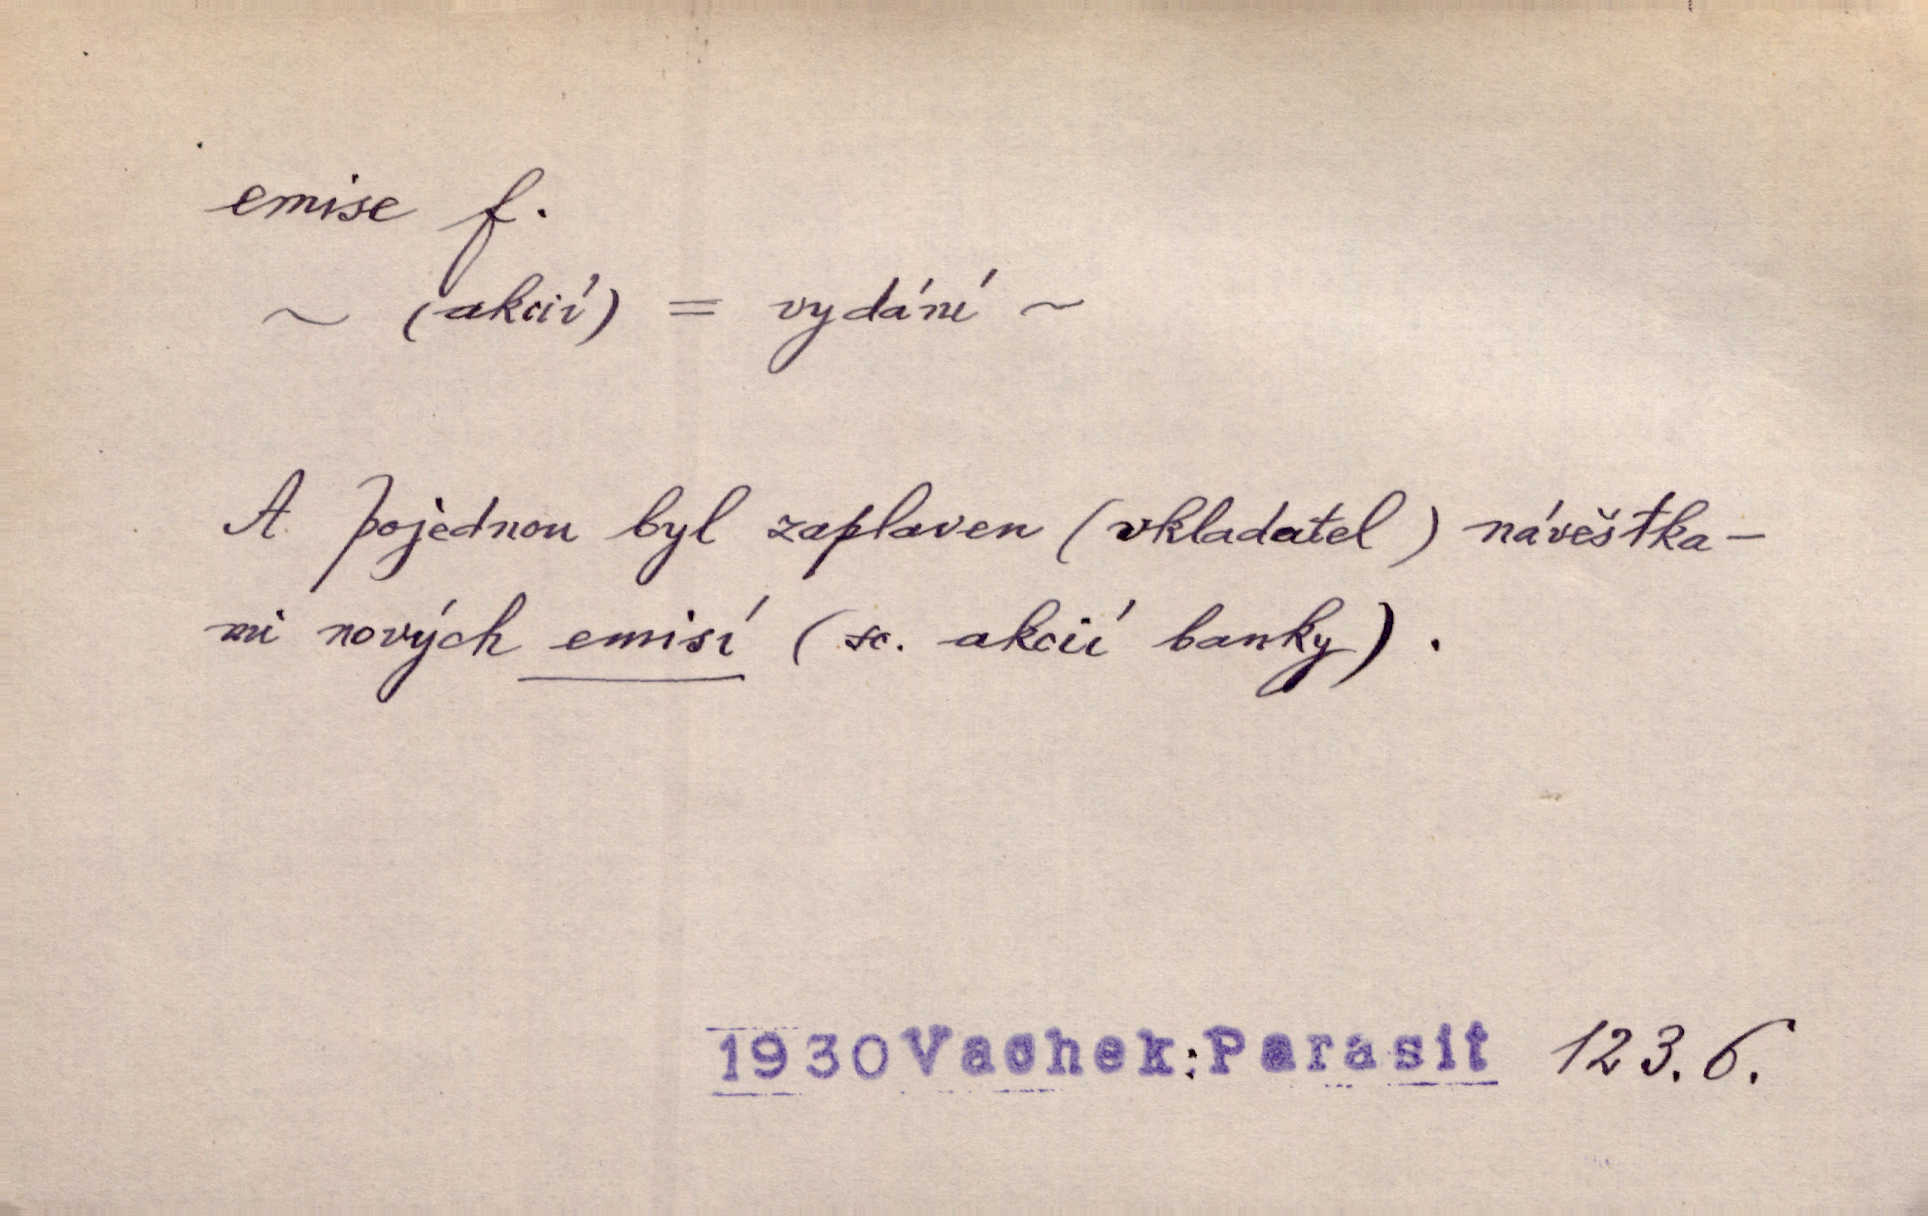 emise f.
~ (akcií) = vydání ~
A pojednou byl zaplaven (vkladatel) návěštka-
mi nových emisí (sc. akcií banky).
1930 Vachek: Parasit 123.6.